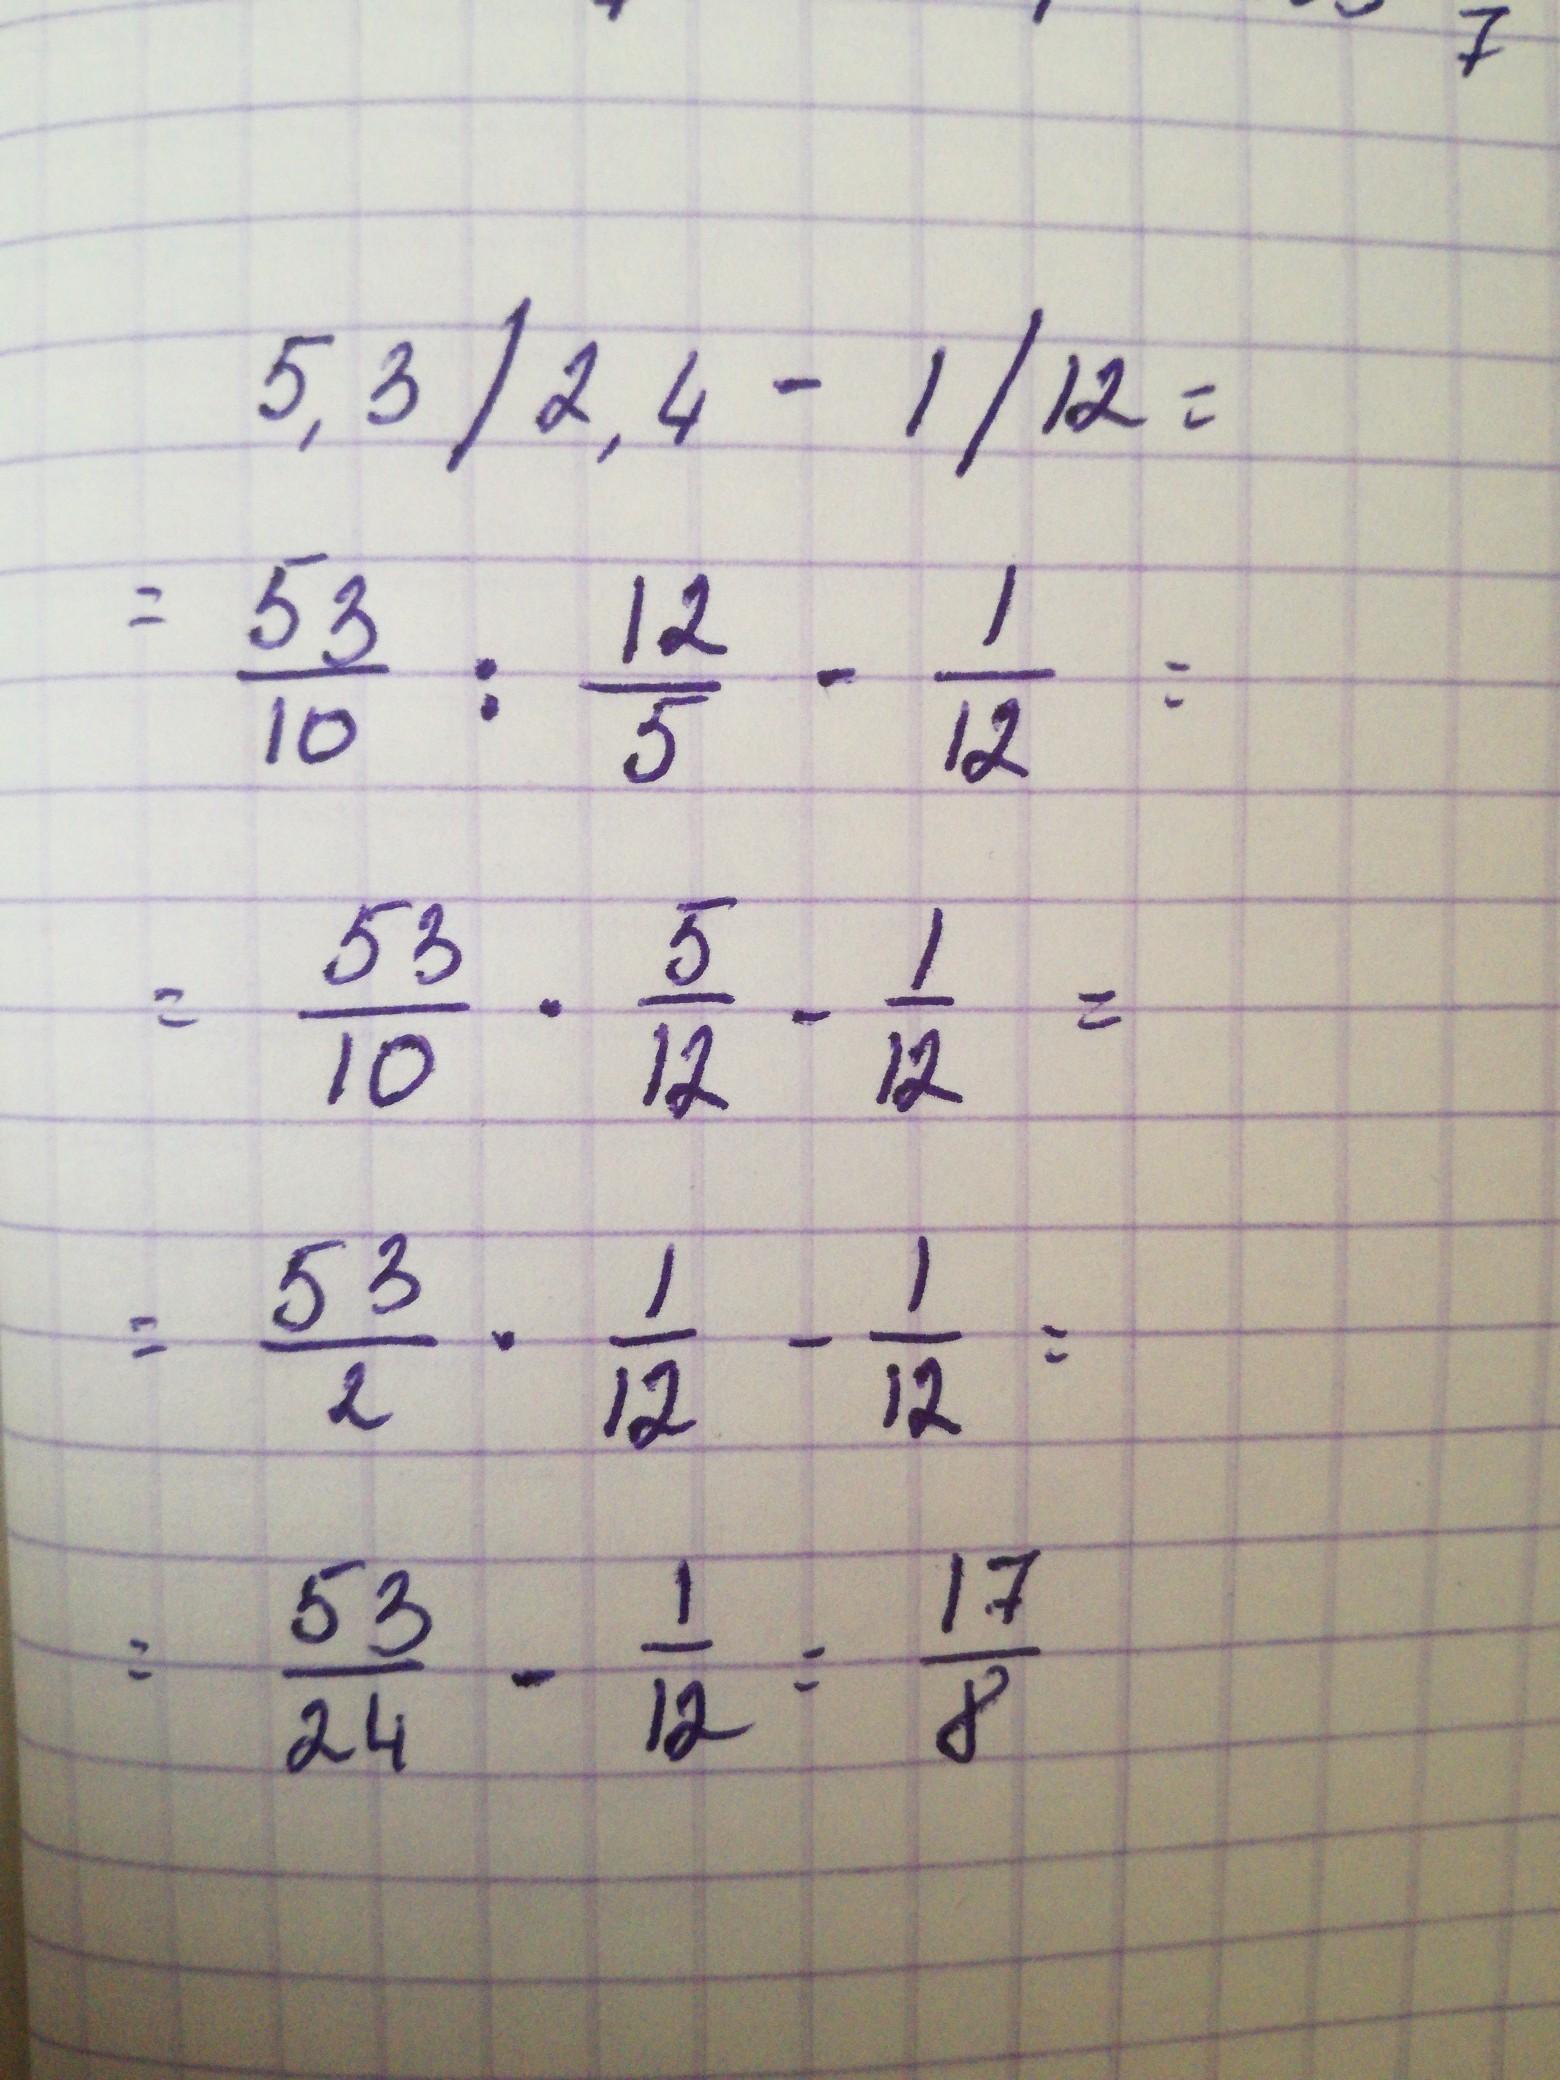 7
5,3/2,4 - 1/12 =
= 53/10 : 12/5 - 1/12 =
= 53/10 · 5/12 - 1/12 =
= 53/2 · 1/12 - 1/12 =
= 53/24 - 1/12 = 17/8